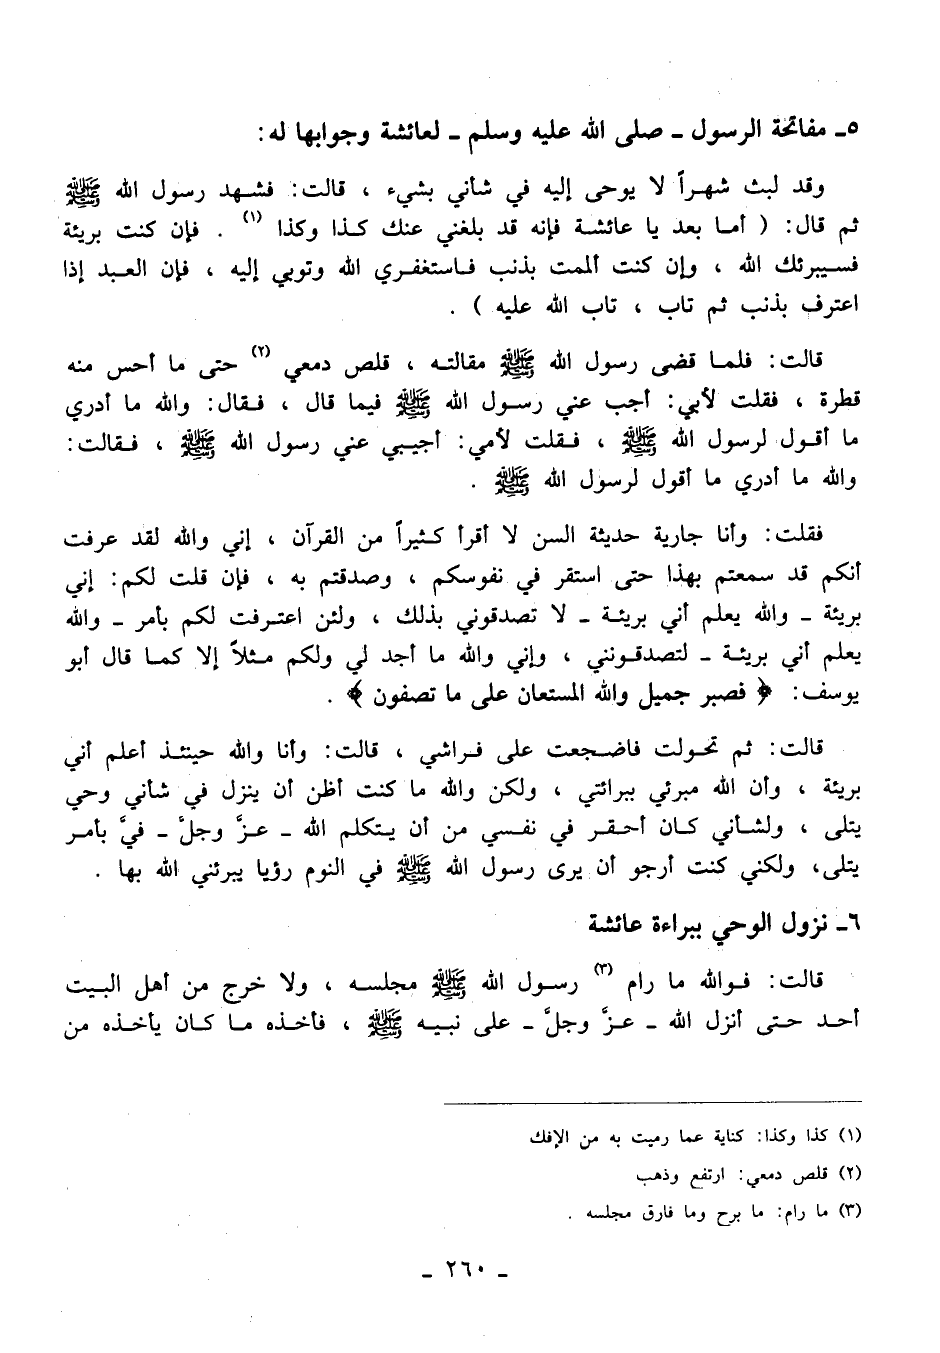 ٥ـ مفاتحة الرسول ـ صلى الله عليه وسلم ـ لعائشة وجوابها له:
وقد لبث شهراً لا يوحى إليه في شأني بشيء ، قالت: فشهد رسول الله ﷺ
ثم قال: ( أما بعد يا عائشة فإنه قد بلغني عنك كذا وكذا (١) . فإن كنت بريئة
فسيبرئك الله ، وإن كنت ألممت بذنب فاستغفري الله وتوبي إليه ، فإن العبد إذا
اعترف بذنب ثم تاب ، تاب الله عليه ) .
قالت: فلما قضى رسول الله ﷺ مقالته ، قلص دمعي (٢) حتى ما أحس منه
قطرة ، فقلت لأبي: أجب عني رسول الله ﷺ فيما قال ، فقال: والله ما أدري
ما أقول لرسول الله ﷺ ، فقلت لأمي: أجيبي عني رسول الله ﷺ ، فقالت:
والله ما أدري ما أقول لرسول الله ﷺ .
فقلت: وأنا جارية حديثة السن لا أقرأ كثيراً من القرآن ، إني والله لقد عرفت
أنكم قد سمعتم بهذا حتى استقر في نفوسكم ، وصدقتم به ، فإن قلت لكم: إني
بريئة ـ والله يعلم أني بريئة ـ لا تصدقوني بذلك ، ولئن اعترفت لكم بأمر ـ والله
يعلم أني بريئة ـ لتصدقونني ، وإني والله ما أجد لي ولكم مثلاً إلا كما قال أبو
يوسف: ﴿ فصبر جميل والله المستعان على ما تصفون ﴾ .
قالت: ثم تحولت فاضجعت على فراشي ، قالت: وأنا والله حينئذ أعلم أني
بريئة ، وأن الله مبرئي ببرائتي ، ولكن والله ما كنت أظن أن ينزل في شأني وحي
يتلى ، ولشأني كان أحقر في نفسي من أن يتكلم الله ـ عزَّ وجلَّ ـ فيَّ بأمر
يتلى، ولكني كنت أرجو أن يرى رسول الله ﷺ في النوم رؤيا يبرئني الله بها .
٦ـ نزول الوحي ببراءة عائشة
قالت: فوالله ما رام (٣) رسول الله ﷺ مجلسه ، ولا خرج من أهل البيت
أحد حتى أنزل الله ـ عزَّ وجلَّ ـ على نبيه ﷺ ، فأخذه ما كان يأخذه من
(١) كذا وكذا: كناية عما رميت به من الإفك
(٢) قلص دمعي: ارتفع وذهب
(٣) ما رام: ما برح وما فارق مجلسه .
ـ ٢٦٠ ـ